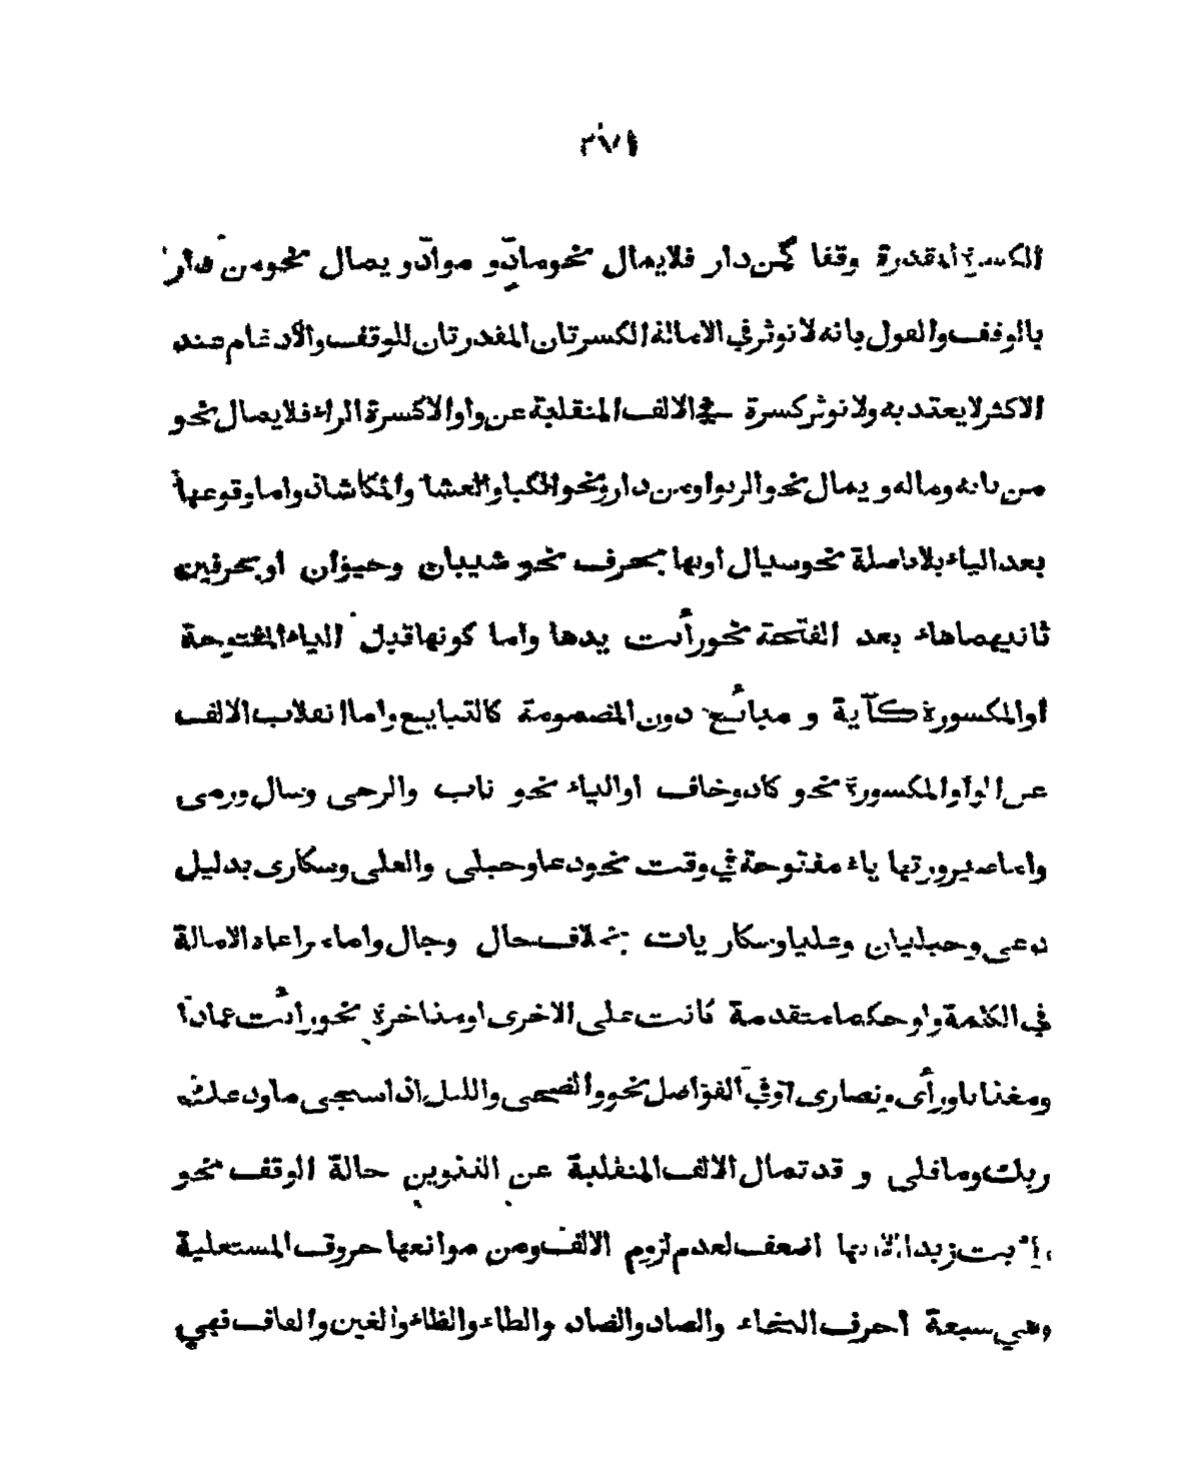 ٣٧١
الكسرة المقدرة وقفا كمن دار فلا يمال نحو مادّ و موادّ و يمال نحو من دار
بالوقف والقول بانه لا توثر في الامالة الكسرتان المقدرتان للوقف والادغام عند
الاكثر لا يعتد به ولا توثر كسرة في الالف المنقلبة عن واو الا كسرة الراء فلا يمال نحو
من بابه وماله و يمال نحو الربوا ومن دار ونحو الكبا والعشا والمكا شاذ واما وقوعها
بعد الياء بلا فاصلة نحو سيال او بها بحرف نحو شيبان وحيوان او بحرفين
ثانيهما هاء بعد الفتحة نحو رأيت يدها واما كونها قبل الياء المفتوحة
او المكسورة كآية و مبائع دون المضمومة كالتبايع واما انقلاب الالف
عن الواو المكسورة نحو كاد وخاف او الياء نحو ناب والرحى وسال ورمى
واما صيرورتها ياء مفتوحة في وقت نحو دعا وحبلى والعلى وسكارى بدليل
دعى وحبليان وعليا وسكاريات بخلاف حال وجال واما مراعاة الامالة
في الكلمة او حكما متقدمة كانت على الاخرى او متاخرة نحو رأيت عمادا
ومغنانا ورأى ونصارى او في الفواصل نحو والضحى والليل اذا سجى ما ودعك
ربك وما قلى و قد تمال الالف المنقلبة عن التنوين حالة الوقف نحو
رأيت زيدا الا انها اضعف لعدم لزوم الالف ومن موانعها حروف المستعلية
وهي سبعة احرف الخاء والصاد والضاد والطاء والظاء والغين والقاف فهي